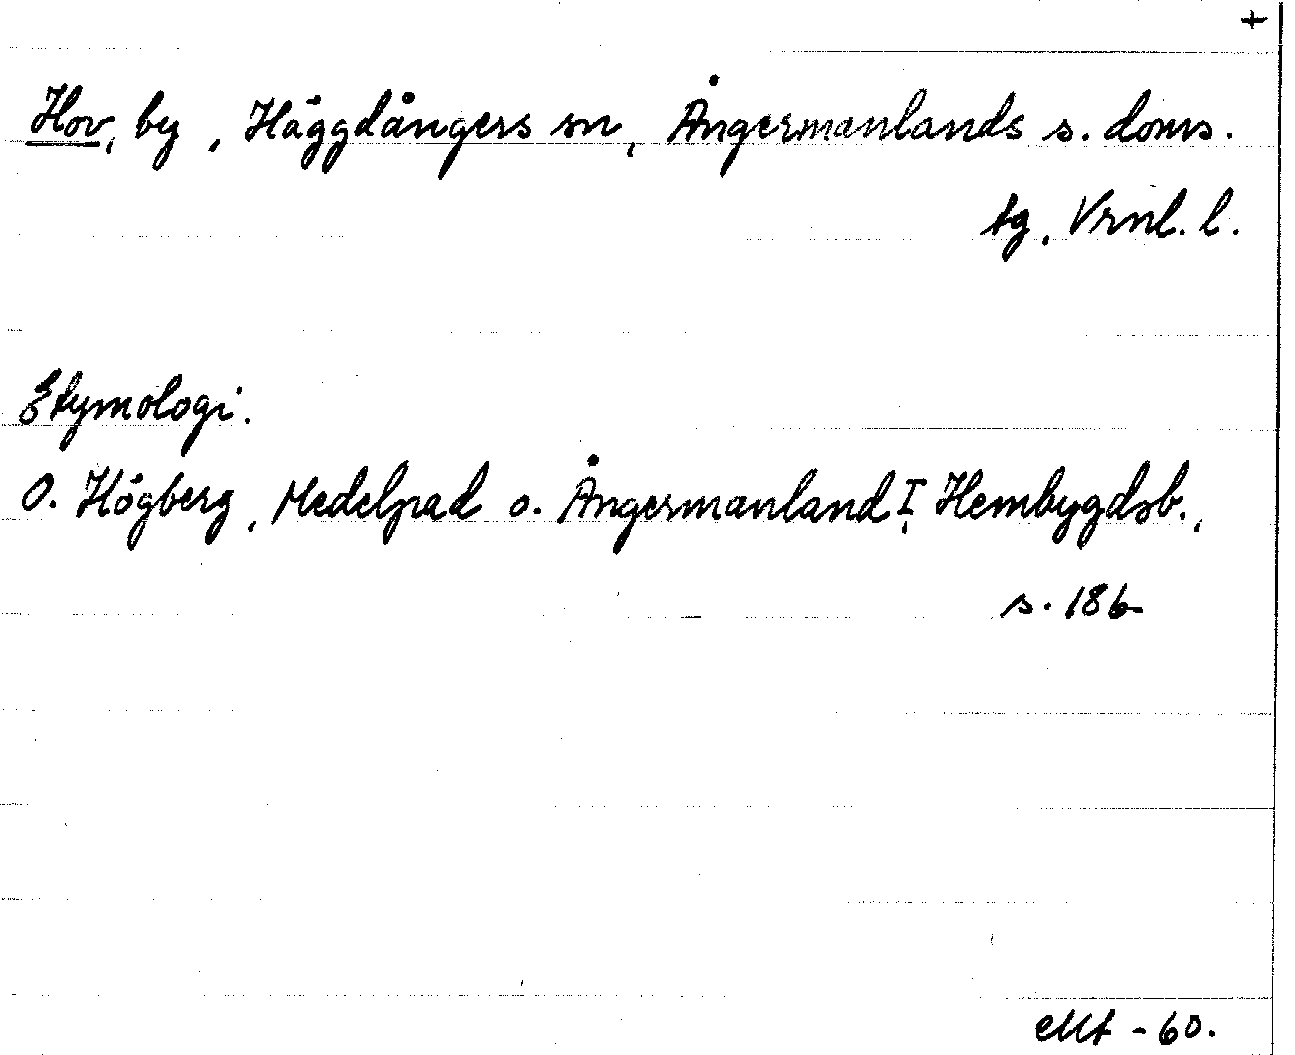 +
Hov, by, Häggdångers sn, Ångermanlands s. doms.
tg, Vrnl. l.
Etymologi.
O. Högberg, Medelpad o. Ångermanland I, Hembygdsb.,
s. 186
-60.